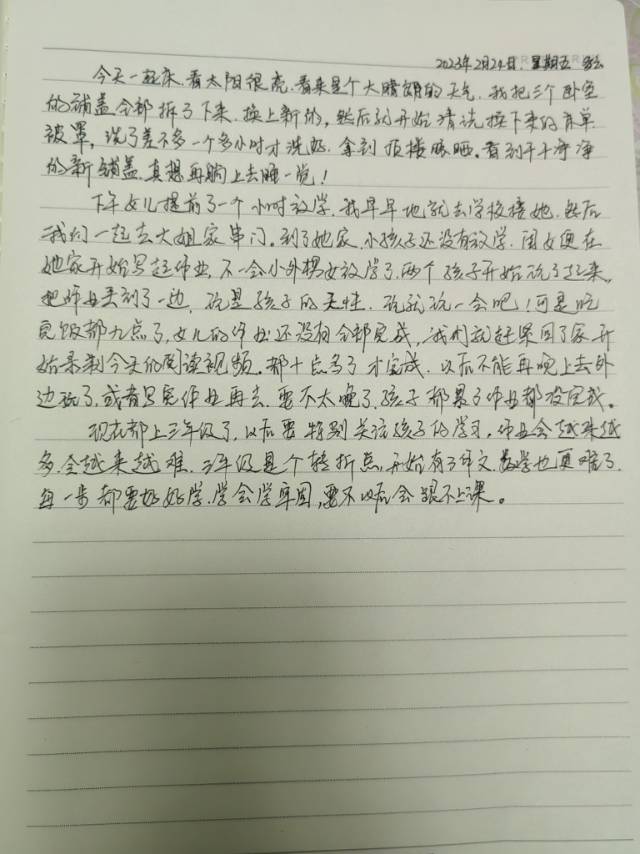 2023年2月24日. 星期五
今天一起床. 看太阳很亮. 看来是个大晴朗的天气. 我把三个卧室
的铺盖全部拆了下来. 换上新的, 然后就开始清洗换下来的床单
被罩, 洗了差不多一个多小时才洗好. 拿到顶楼晾晒. 看到干干净净
的新铺盖. 真想再躺上去睡一觉!
下午女儿提前了一个小时放学. 我早早地就去学校接她. 然后
我们一起去大姐家串门. 到了她家. 小孩子还没有放学. 闺女便在
她家开始写起作业, 不一会小外甥女放学了. 两个孩子开始玩了起来.
把作业丢到了一边, 玩是孩子的天性. 玩就玩一会吧! 可是吃
完饭都九点了, 女儿的作业还没有全部完成, 我们就赶紧回了家开
始录制今天的阅读视频. 都十点多了才完成. 以后不能再晚上去外
边玩了. 或者写完作业再去. 要不太晚了. 孩子都累了作业都没完成.
现在都上三年级了. 以后要特别关注孩子的学习. 作业会越来越
多. 会越来越难. 三年级是个转折点. 开始有了作文. 数学也更难了.
每一步都要好好学. 学会学牢固, 要不以后会跟不上课。